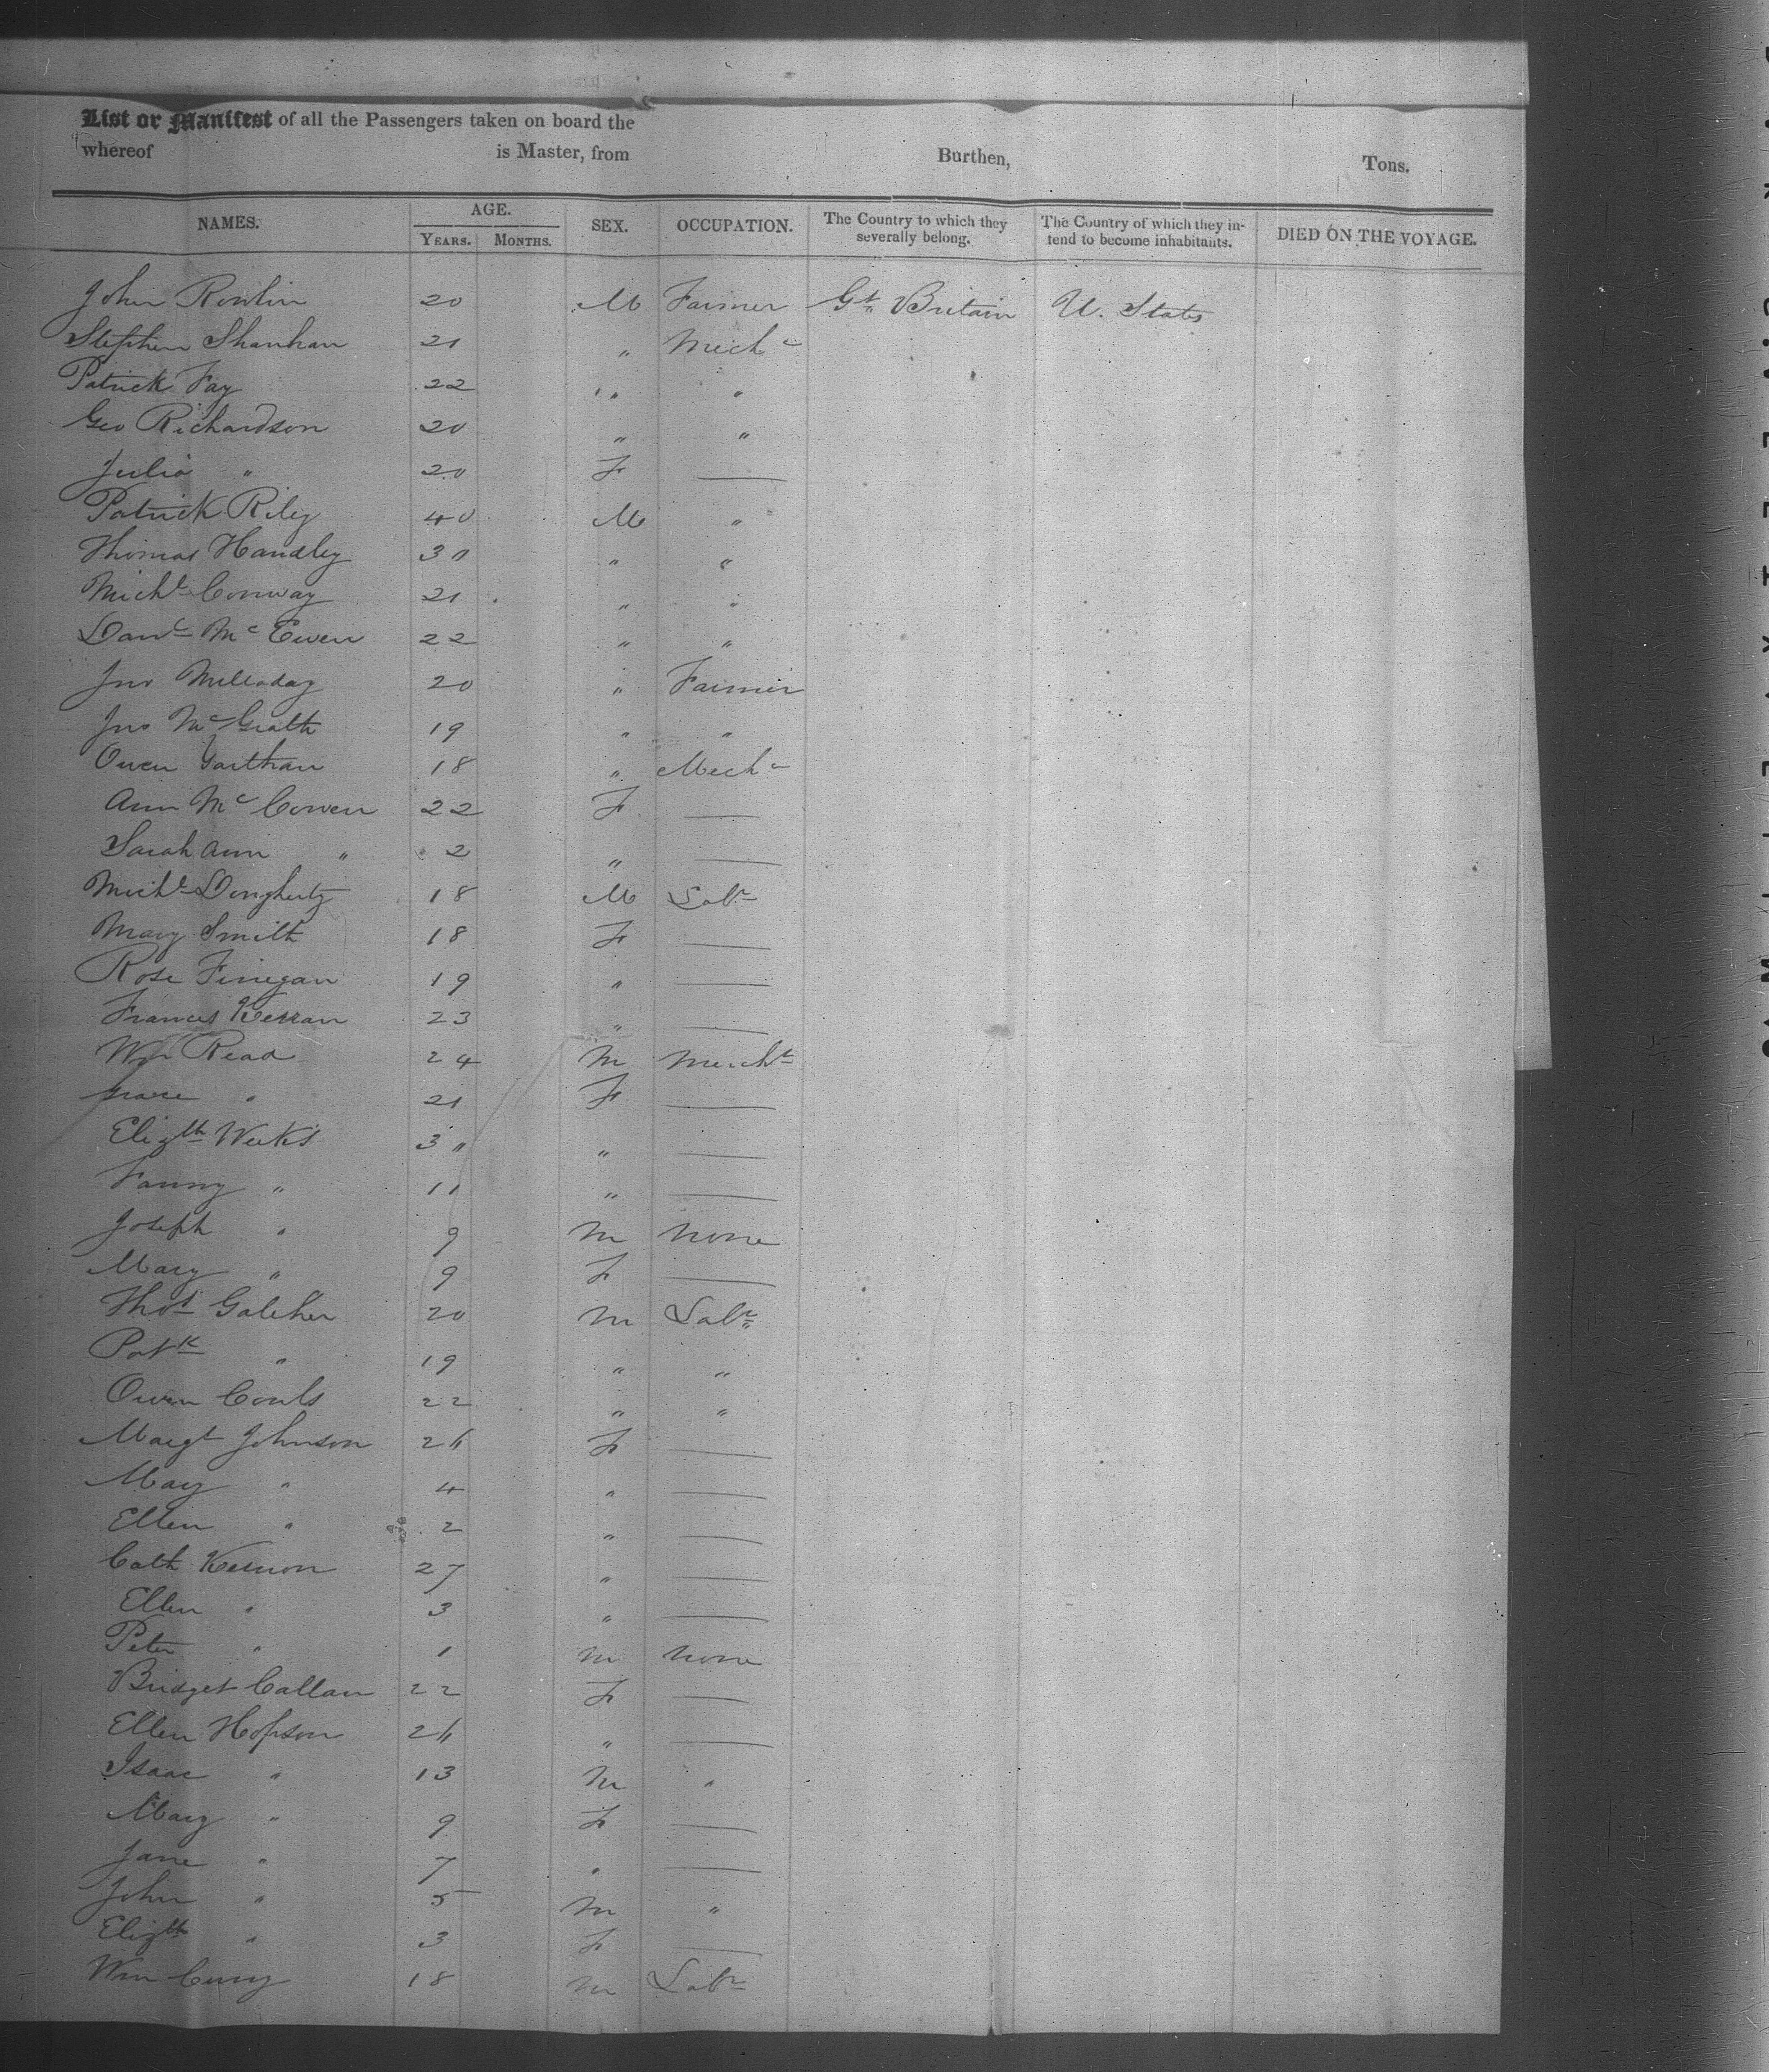 List or Manifest of all the Passengers taken on board the
whereof is Master, from Burthen, Tons.
NAMES. AGE. SEX. OCCUPATION. The Country to which they severally belong. The Country of which they in- tend to become inhabitants. DIED ON THE VOYAGE.
YEARS. MONTHS.
John Rowlin 20 M Farmer Gt Britain U. States
Stephen Shanhan 21 " Mechc
Patrick Fay 22 " "
Geo Richardson 20 " "
Julia " 20 F —
Patrick Riley 40 M "
Thomas Handley 30 " "
Michl Conway 21 " "
Danl Mc Ewen 22 " "
Jno Melloday 20 " Farmer
Jno McGrath 19 " "
Owen 18 " Mechc
Ann Mc Cowen 22 F —
Sarah Ann " 2 " —
Michl Dougherty 18 M Labr
Mary Smith 18 F —
Rose Finegan 19 " —
Frances Kerran 23 " —
Wm Read 24 M Mercht
" 21 F —
Elizth Weeks 3" " —
Fanny " 11 " —
Joseph " 9 M None
Mary " 9 F —
Thos Galeher 20 M Labr
Patk " 19 " "
Owen 22 " "
Margt Johnson 26 F —
Mary " 4 " —
Ellen " 2 " —
Cath Kernon 27 " —
Ellen " 3 " —
Peter " 1 M None
Bridget Callan 22 F —
Ellen Hopson 26 " —
Isaac " 13 M "
Mary " 9 F —
Jane " 7 " —
John " 5 M "
Elizth " 3 F —
Wm Curry 18 M Labr